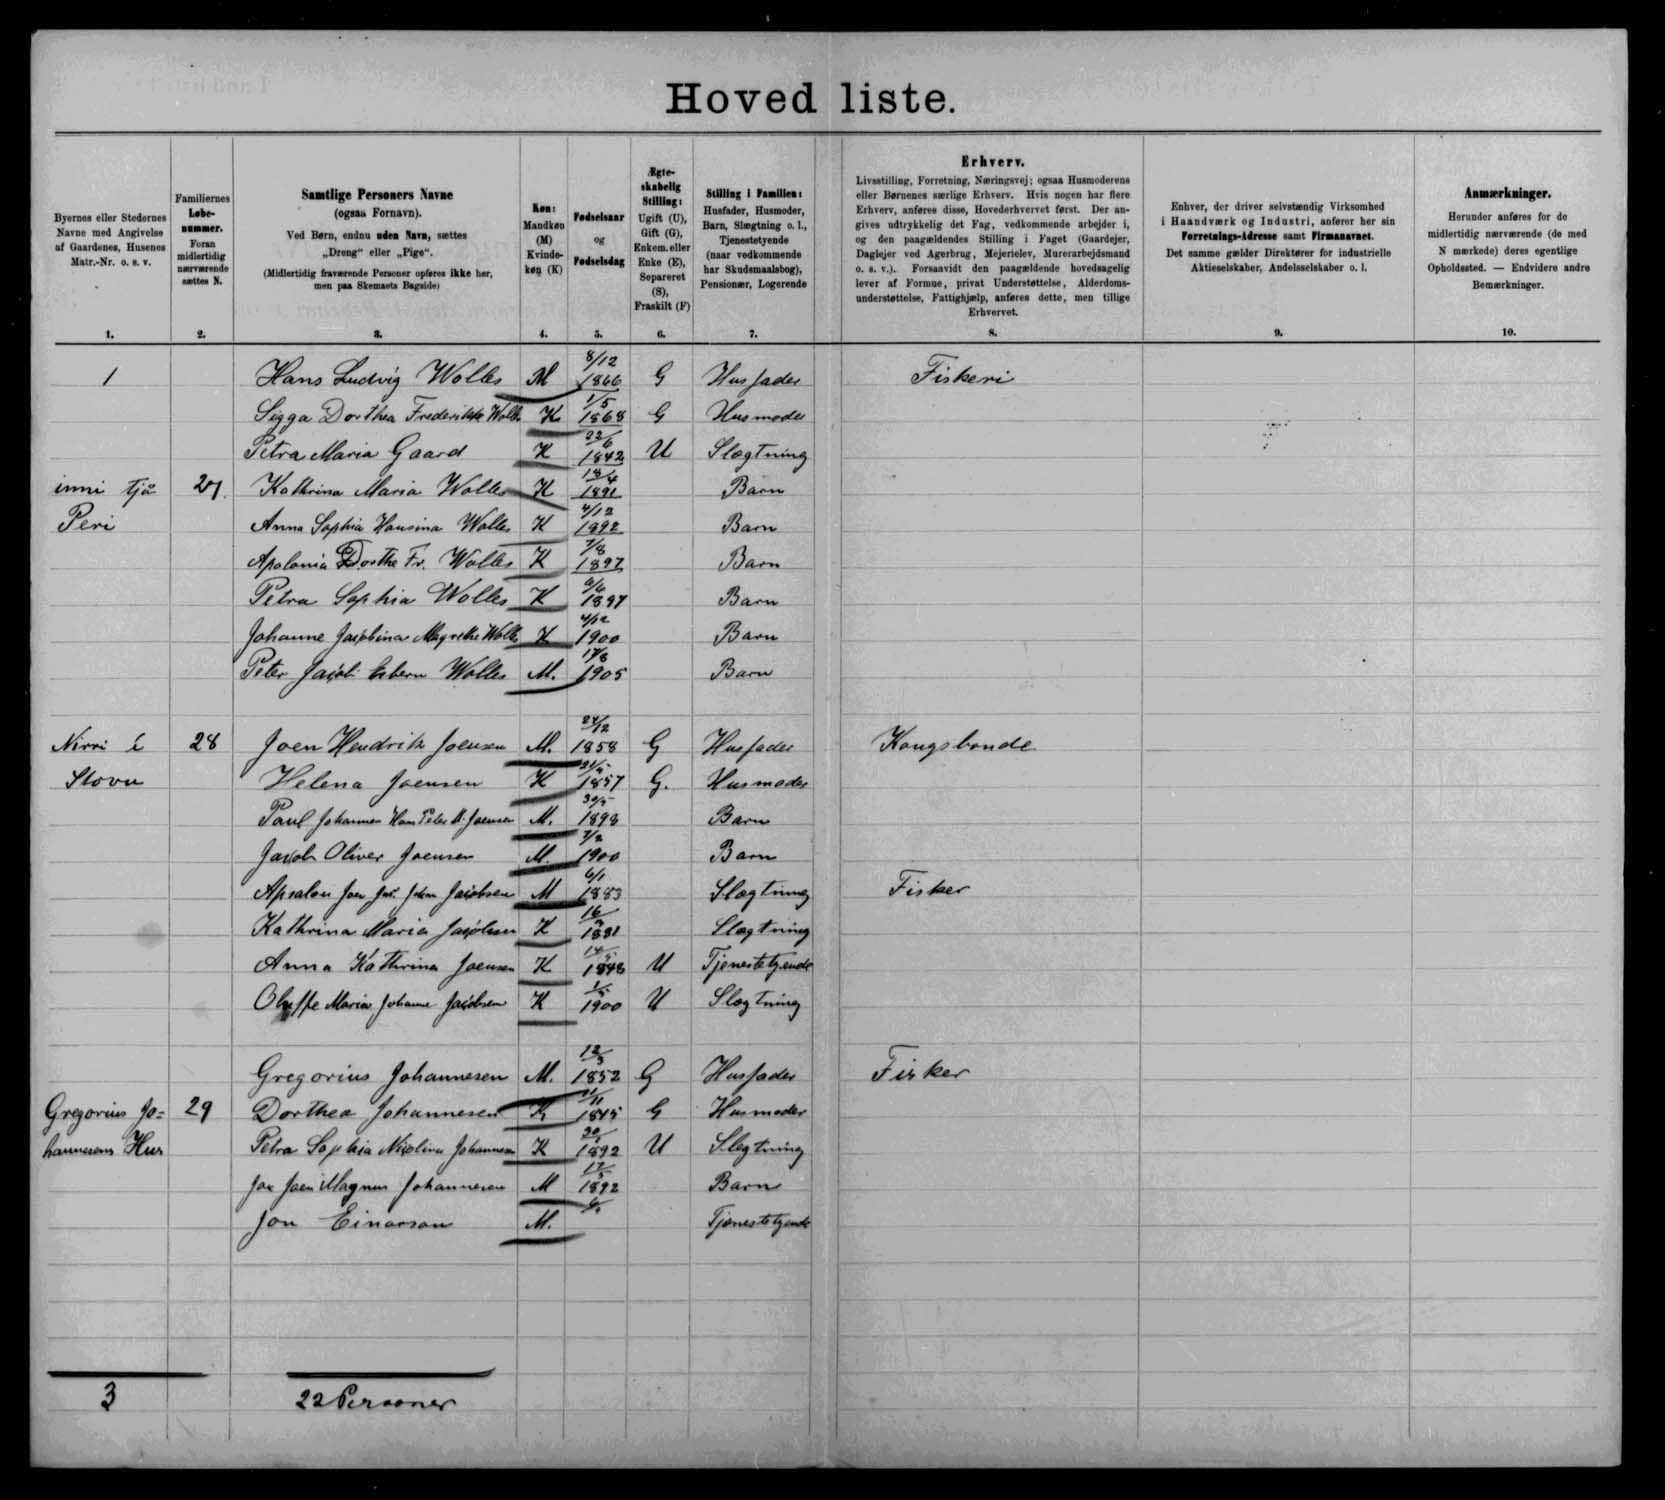 Hoved liste.
Byernes eller Stedernes Navne med Angivelse af Gaardenes, Husenes Matr.-Nr. o. s. v.
Familiernes Løbenummer. Foran midlertidig nærværende sættes N.
Samtlige Personers Navne
(ogsaa Fornavn).
Ved Børn, endnu uden Navn, sættes
„Dreng“ eller „Pige“.
(Midlertidig fraværende Personer opføres ikke her,
men paa Skemaets Bagside)
Køn:
Mandkøn
(M)
Kvinde-
køn (K)
Fødselsaar
og
Fødselsdag
Ægte-
skabelig
Stilling:
Ugift (U),
Gift (G),
Enkem. eller
Enke (E),
Separeret
(S),
Fraskilt (F)
Stilling i Familien:
Husfader, Husmoder,
Barn, Slægtning o. l.,
Tjenestetyende
(naar vedkommende
har Skudsmaalsbog),
Pensionær, Logerende
Erhverv.
Livsstilling, Forretning, Næringsvej; ogsaa Husmoderens
eller Børnenes særlige Erhverv. Hvis nogen har flere
Erhverv, anføres disse, Hovederhvervet først. Der an-
gives udtrykkelig det Fag, vedkommende arbejder i,
og den paagældendes Stilling i Faget (Gaardejer,
Daglejer ved Agerbrug, Mejerielev, Murerarbejdsmand
o. s. v.). Forsaavidt den paagældende hovedsagelig
lever af Formue, privat Understøttelse, Alderdoms-
understøttelse, Fattighjælp, anføres dette, men tillige
Erhvervet.
Enhver, der driver selvstændig Virksomhed
i Haandværk og Industri, anfører her sin
Forretnings-Adresse samt Firmanavnet.
Det samme gælder Direktører for industrielle
Aktieselskaber, Andelsselskaber o. l.
Anmærkninger.
Herunder anføres for de
midlertidig nærværende (de med
N mærkede) deres egentlige
Opholdssted. — Endvidere andre
Bemærkninger.
1. 2. 3. 4. 5. 6. 7. 8. 9. 10.
1 Hans Ludvig Wolles M 8/12 1866 G Husfader Fiskeri
Sigga Dorthea Frederikke K 1/5 1868 G Husmoder
Petra Maria Gaard K 22/6 1842 U Slægtning
inni tjá 27. Kathrina Maria Wolles K 18/4 1891 Barn
Peri Anna Sophia Hansina Wolles K 4/12 1892 Barn
Apolonia Dorthe Fr. Wolles K 7/8 1897 Barn
Petra Sophia Wolles K 1897 Barn
Johanne Jacobina Magrethe K 4/12 1900 Barn
Peter Jacob Esbern Wolles M. 17/8 1905 Barn
Nirri í 28 Joen Hendrik Joensen M. 24/12 1858 G Husfader Kongsbonde
Stovu Helena Joensen K 1857 G. Husmoder
Paul Johannes Hans Peter M. Joensen M. 30/5 1898 Barn
Jacob Oliver Joensen M. 7/2 1900 Barn
Apsalon Joen Jacobsen M 6/1 1883 Slægtning Fisker
Kathrina Maria Jacobsen K 1881 Slægtning
Anna Kathrina Joensen K 1848 U Tjenestetyende
Oluffe Maria Johanne Jacobsen K 1900 U Slægtning
Gregorius Johannesen M. 12/3 1852 G Husfader Fisker
Gregorius Jo= 29 Dorthea Johannesen K 1845 G Husmoder
hannesens Hus Petra Sophia Nicolina Johannesen K 1892 U Slegtning
Joen Magnus Johannesen M 1892 Barn
Jon Einarson M. Tjenestetyende
3 22 Personer